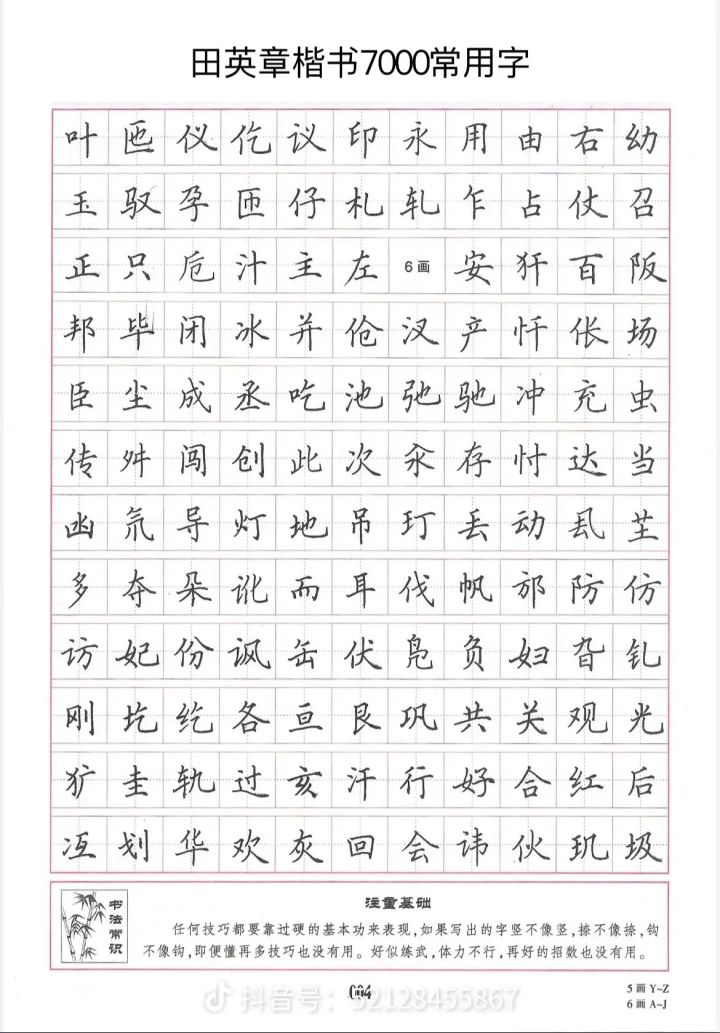 田英章楷书7000常用字
叶 匜 仪 仡 议 印 永 用 由 右 幼
玉 驭 孕 匝 仔 札 轧 乍 占 仗 召
正 只 卮 汁 主 左 6画 安 犴 百 阪
邦 毕 闭 冰 并 伧 汉 产 忏 伥 场
臣 尘 成 丞 吃 池 弛 驰 冲 充 虫
传 舛 闯 创 此 次 汆 存 忖 达 当
凼 氘 导 灯 地 吊 玎 丢 动 厾 芏
多 夺 朵 讹 而 耳 伐 帆 邡 防 仿
访 妃 份 讽 缶 伏 凫 负 妇 旮 钆
刚 圪 纥 各 亘 艮 巩 共 关 观 光
犷 圭 轨 过 亥 汗 行 好 合 红 后
冱 划 华 欢 灰 回 会 讳 伙 玑 圾
书法常识
注重基础
任何技巧都要靠过硬的基本功来表现,如果写出的字竖不像竖,捺不像捺,钩
不像钩,即便懂再多技巧也没有用。好似练武,体力不行,再好的招数也没有用。
004
抖音号：52128455867
5画 Y~Z
6画 A~J